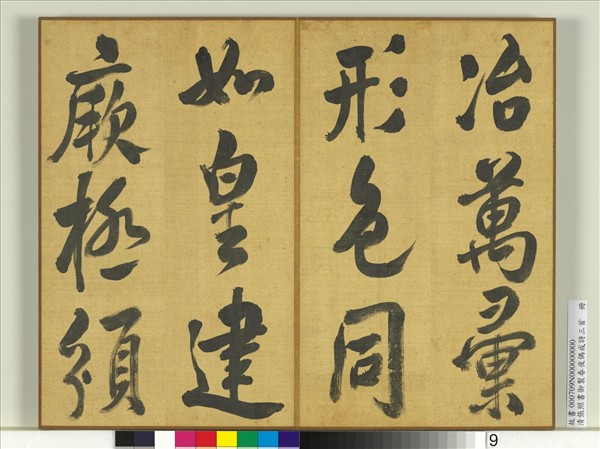 冶萬彙
形色同
如皇建
厥極須
故書000709N000000000
清張照書御製春夜偶成詩三首 冊
9